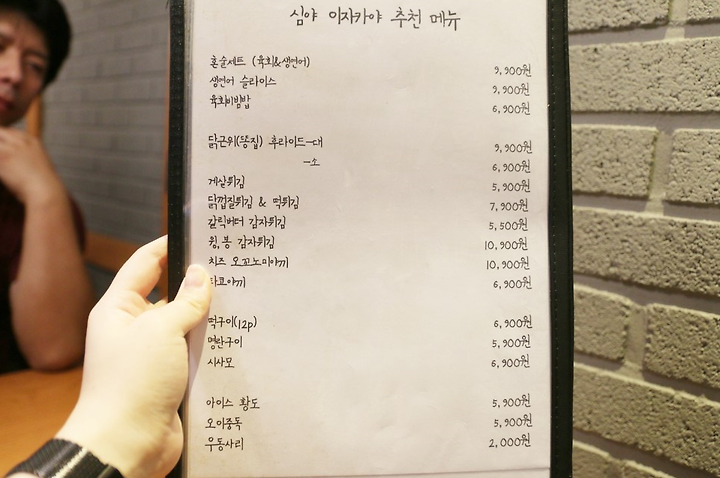 심야 이자카야 추천 메뉴
혼술세트 (육회&생연어) 9,900원
생연어 슬라이스 9,900원
육회비빔밥 6,900원
닭근위(똥집) 후라이드-대 9,900원
-소 6,900원
게살튀김 5,900원
닭껍질튀김 & 떡튀김 7,900원
갈릭버터 감자튀김 5,500원
윙,봉 감자튀김 10,900원
치즈 오꼬노미야끼 10,900원
타코야끼 6,900원
떡구이(12p) 6,900원
명란구이 5,900원
시샤모 6,900원
아이스 황도 5,900원
오이중독 5,900원
우동사리 2,000원